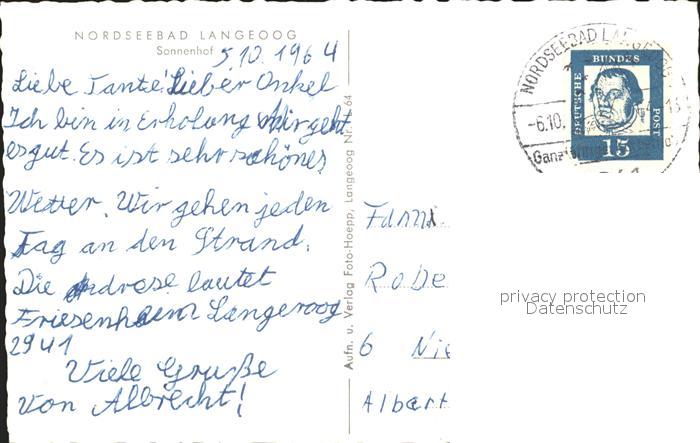 NORDSEEBAD LANGEOOG
Sonnenhof
5.10.1964
Liebe Tante! Lieber Onkel
Ich bin in Erholung Mir geht
es gut. Es ist sehr schönes
Wetter. Wir gehen jeden
Tag an den Strand.
Die Adrese lautet
Friesenheim Langeroog
2941
Viele Gruße
von Albrecht!
Aufn. u. Verlag Foto-Hoepp, Langeoog Nr. 64
NORDSEEBAD LANGEOOG
-6.10.
DEUTSCHE BUNDES POST
15
Fami
Robe
6 Nie
Albert
privacy protection
Datenschutz